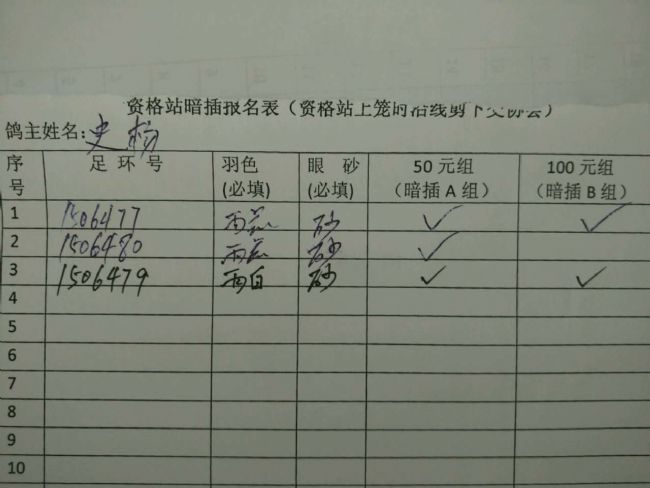 资格站暗插报名表（资格站上笼时沿线剪下交协会）
鸽主姓名：史杨
序号 足环号 羽色(必填) 眼砂(必填) 50元组（暗插A组） 100元组（暗插B组）
1 1506477 雨花 砂 ✓ ✓
2 1506480 雨花 砂 ✓
3 1506479 雨白 砂 ✓ ✓
4
5
6
7
8
9
10